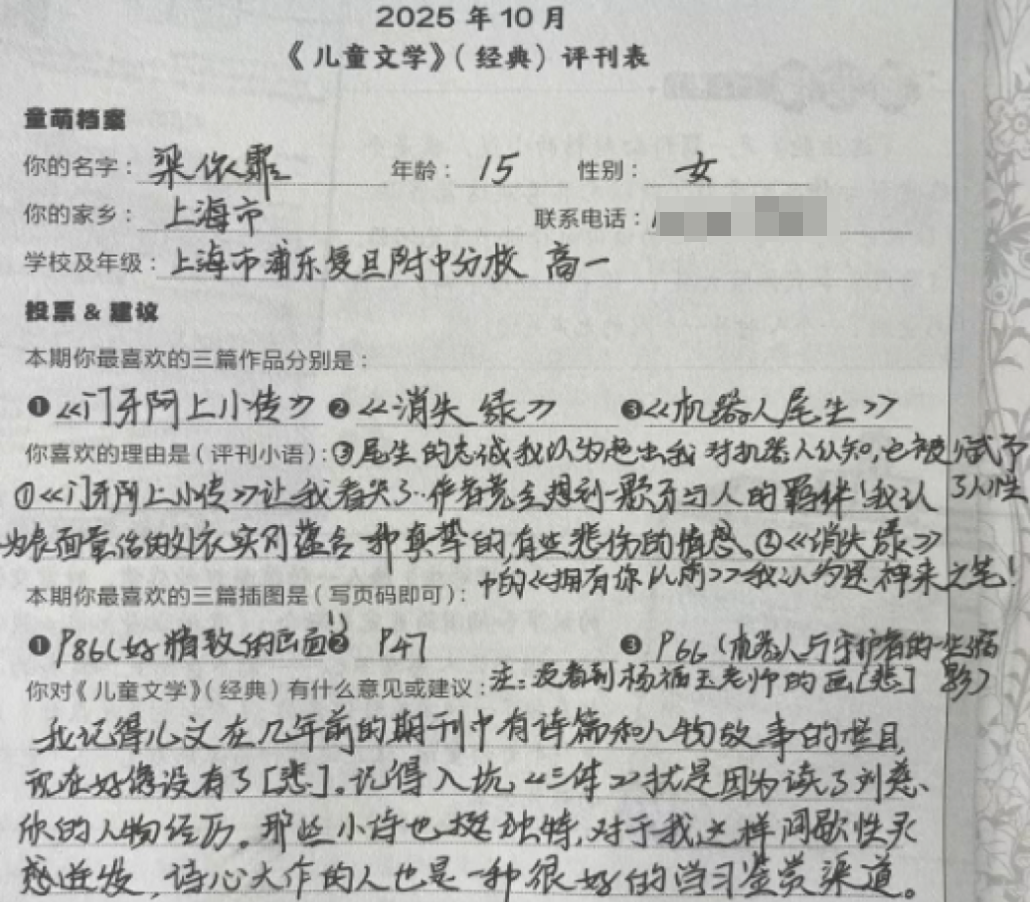 2025 年 10 月
《儿童文学》（经典）评刊表
童萌档案
你的名字：梁依霏 年龄：15 性别：女
你的家乡：上海市 联系电话：
学校及年级：上海市浦东复旦附中分校 高一
投票 & 建议
本期你最喜欢的三篇作品分别是：
❶《门牙阿上小传》 ❷《消失绿》 ❸《机器人尾生》
你喜欢的理由是（评刊小语）：③尾生的忠诚我以为超出我对机器人认知，也被赋予了人性
①《门牙阿上小传》让我看哭了…作者竟会想到一颗牙与人的羁绊！我认
为表面童话的外衣实则蕴含一种真挚的，有些悲伤的情感。②《消失绿》
中的《拥有你以前》我认为是神来之笔！
本期你最喜欢的三篇插图是（写页码即可）：
❶ P86（好精致的画面！） ❷ P47 ❸ P66（机器人与守护者的一些缩影）
你对《儿童文学》（经典）有什么意见或建议：注：没看到杨福玉老师的画[悲]
我记得儿文在几年前的期刊中有诗篇和人物故事的栏目，
现在好像没有了[悲]。记得入坑《三体》就是因为读了刘慈
欣的人物经历。那些小诗也挺独特，对于我这样间歇性灵
感迸发，诗心大作的人也是一种很好的学习鉴赏渠道。